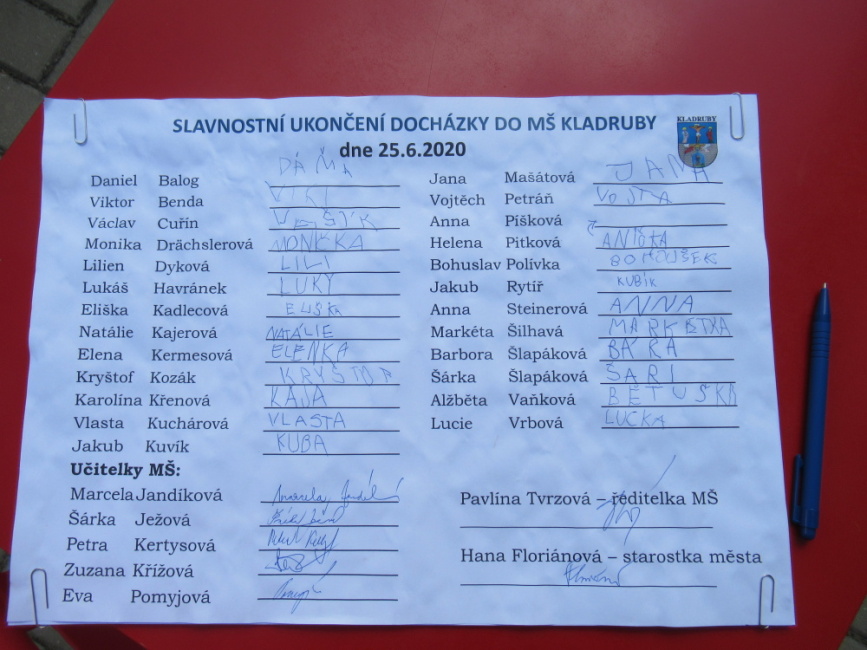 SLAVNOSTNÍ UKONČENÍ DOCHÁZKY DO MŠ KLADRUBY
KLADRUBY
dne 25.6.2020
Daniel Balog DÁŇA
Viktor Benda VIKI
Václav Cuřín VAŠÍK
Monika Drächslerová MONČKA
Lilien Dyková LILI
Lukáš Havránek LUKY
Eliška Kadlecová ELIŠKA
Natálie Kajerová NATÁLIE
Elena Kermesová ELENKA
Kryštof Kozák KRYŠTOF
Karolína Křenová KÁJA
Vlasta Kuchárová VLASTA
Jakub Kuvík KUBA
Učitelky MŠ:
Marcela Jandíková
Šárka Ježová
Petra Kertysová
Zuzana Křížová
Eva Pomyjová
Jana Mašátová JANA
Vojtěch Petráň VOJTA
Anna Píšková
Helena Pitková ANIČKA
Bohuslav Polívka BOHOUŠEK
Jakub Rytíř KUBÍK
Anna Steinerová ANNA
Markéta Šilhavá MARKÉTKA
Barbora Šlapáková BÁRA
Šárka Šlapáková ŠARI
Alžběta Vaňková BĚTUŠKA
Lucie Vrbová LUCKA
Pavlína Tvrzová – ředitelka MŠ
Hana Floriánová – starostka města